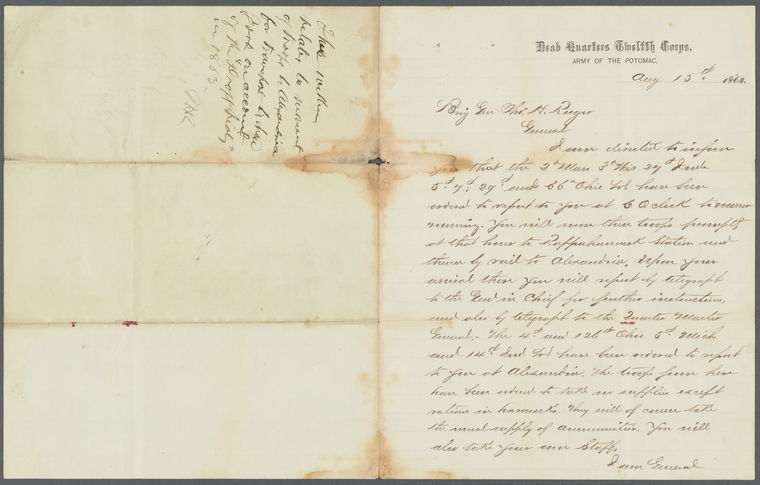 These within
relates to movement
of troops to Alexandria
for transfer to New
York on account
of the Draft Troubles
in 1863.
Head Quarters Twelfth Corps,
ARMY OF THE POTOMAC,
Aug 15th 1863.
Brig Gen Tho. H. Ruger
General
I am directed to inform
you that the 2d Mass. 3d Wis 27th Ind
5th 7th 29th and 66th Ohio Vols have been
ordered to report to you at 6 O'clock tomorrow
morning. You will move these troops promptly
at that hour to Rappahannock Station and
thence by rail to Alexandria. Upon your
arrival there you will report by telegraph
to the Genl in Chief for further instructions,
and also by telegraph to the Quarter Master
General. The 4th and 126th Ohio 5th Mich
and 14th Ind Vols have been ordered to report
to you at Alexandria. The troops from here
have been ordered to take no supplies except
rations in haversacks. They will of course take
the usual supply of ammunition. You will
also take your own Staff.
I am General